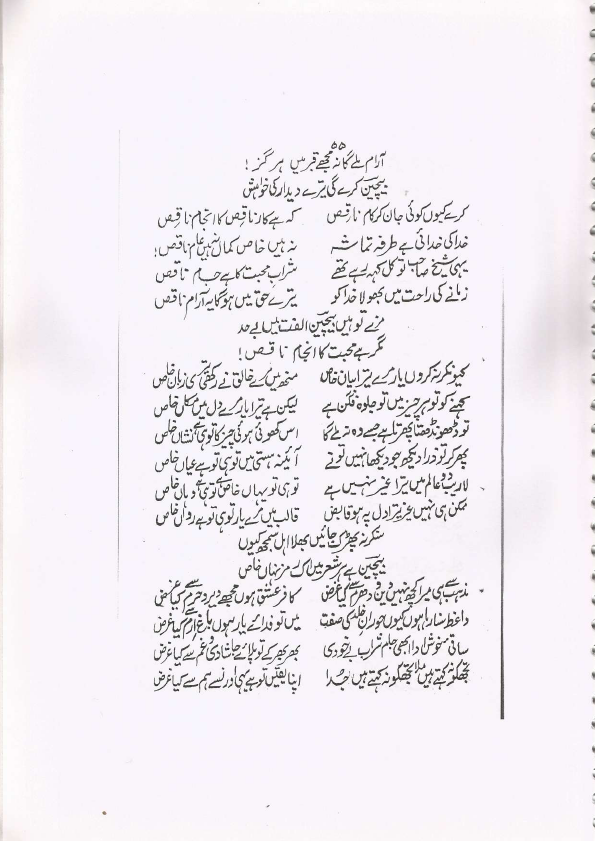 ۵۵
آرام ملے گا نہ مجھے قبر میں ہرگز!
بیچین کرے گی ترے دیدار کی خواہش
کرے کیوں کوئی جان کر کام ناقص کہ ہے کار ناقص کا انجام ناقص
خدا کی خدائی ہے طرفہ تماشہ نہ ہیں خاص کمال نہیں عام ناقص!
یہی شیخ صاحب تو کل کہہ رہے تھے شراب محبت کا ہے جام ناقص
زمانے کی راحت میں بھولا خدا کو ترے حق میں ہوگا یہ آرام ناقص
مزے تو ہیں بیچین الفت میں بے حد
مگر ہے محبت کا انجام ناقص!
کیونکر نہ کروں یار مرے تیرا بیاں خاص منھ میں مرے خالق نے رکھی تری زباں خاص
کہنے کو تو ہر چیز میں تو جلوہ فگن ہے لیکن ہے ترا یار مرے دل میں مکاں خاص
تو ڈھونڈھتا پھرتا ہے جسے وہ نہ ملے گا اس کھوئی ہوئی چیز کا تو ہی ہے نشاں خاص
پھر کر تو ذرا دیکھ جو دیکھا نہیں تو نے آئینہ ہستی میں تو ہی تو ہے عیاں خاص
لاریب دو عالم میں ترا غیر نہیں ہے تو ہی تو یہاں خاص ہے تو ہی ہے وہاں خاص
ممکن ہی نہیں غیر ترا دل پہ ہو قابض قالب میں مرے یار تو ہی تو ہے رواں خاص
سنکر نہ پھڑک جائیں بھلا اہل سمجھ کیوں
بیچین ہے ہر شعر میں اک رمز نہاں خاص
مذہب سے ہی میرا کچھ نہیں دین و دھرم سے کیا غرض کافر عشق ہوں مجھے دیر و حرم سے کیا غرض
واعظ سنا رہا ہوں کیوں حوران خلد کی صفت میں تو فدائے یار ہوں باغ ارم سے کیا غرض
ساقی خوش ادا ابھی جام شراب بے خودی بھر بھر کے تو پلائے جا شادی و غم سے کیا غرض
تجھکو نہ کہتے ہیں ملا تجھکو نہ کہتے ہیں جدا اپنا یقیں تو ہے یہی اور نسے ہم سے کیا غرض